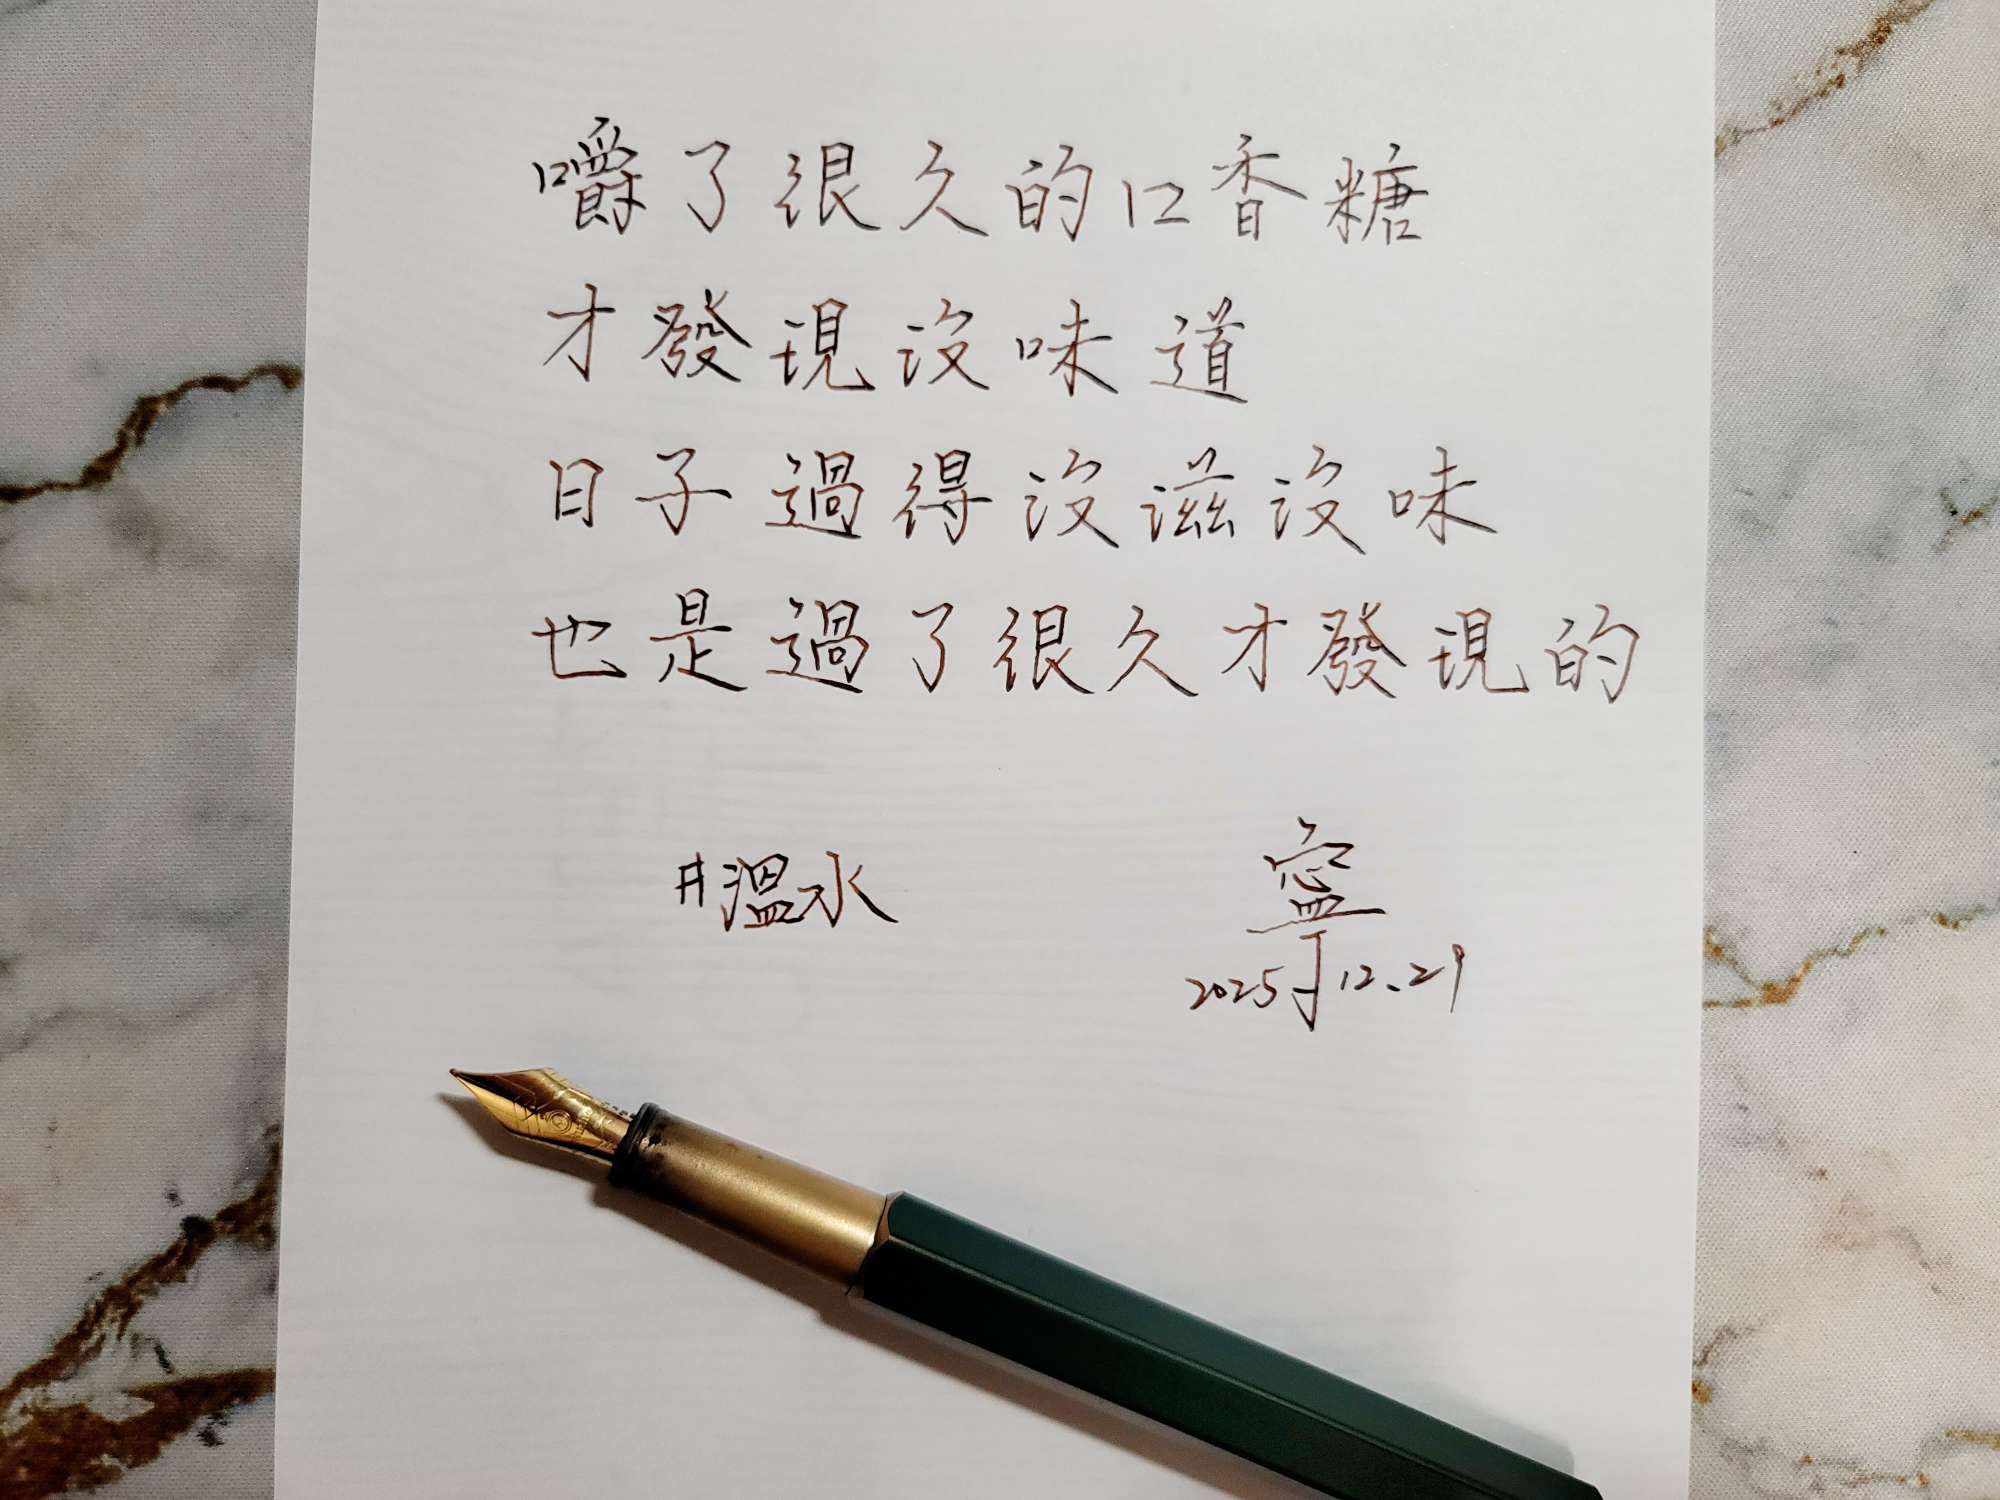 嚼了很久的口香糖
才發現沒味道
日子過得沒滋沒味
也是過了很久才發現的
#溫水
寧
2025.12.29